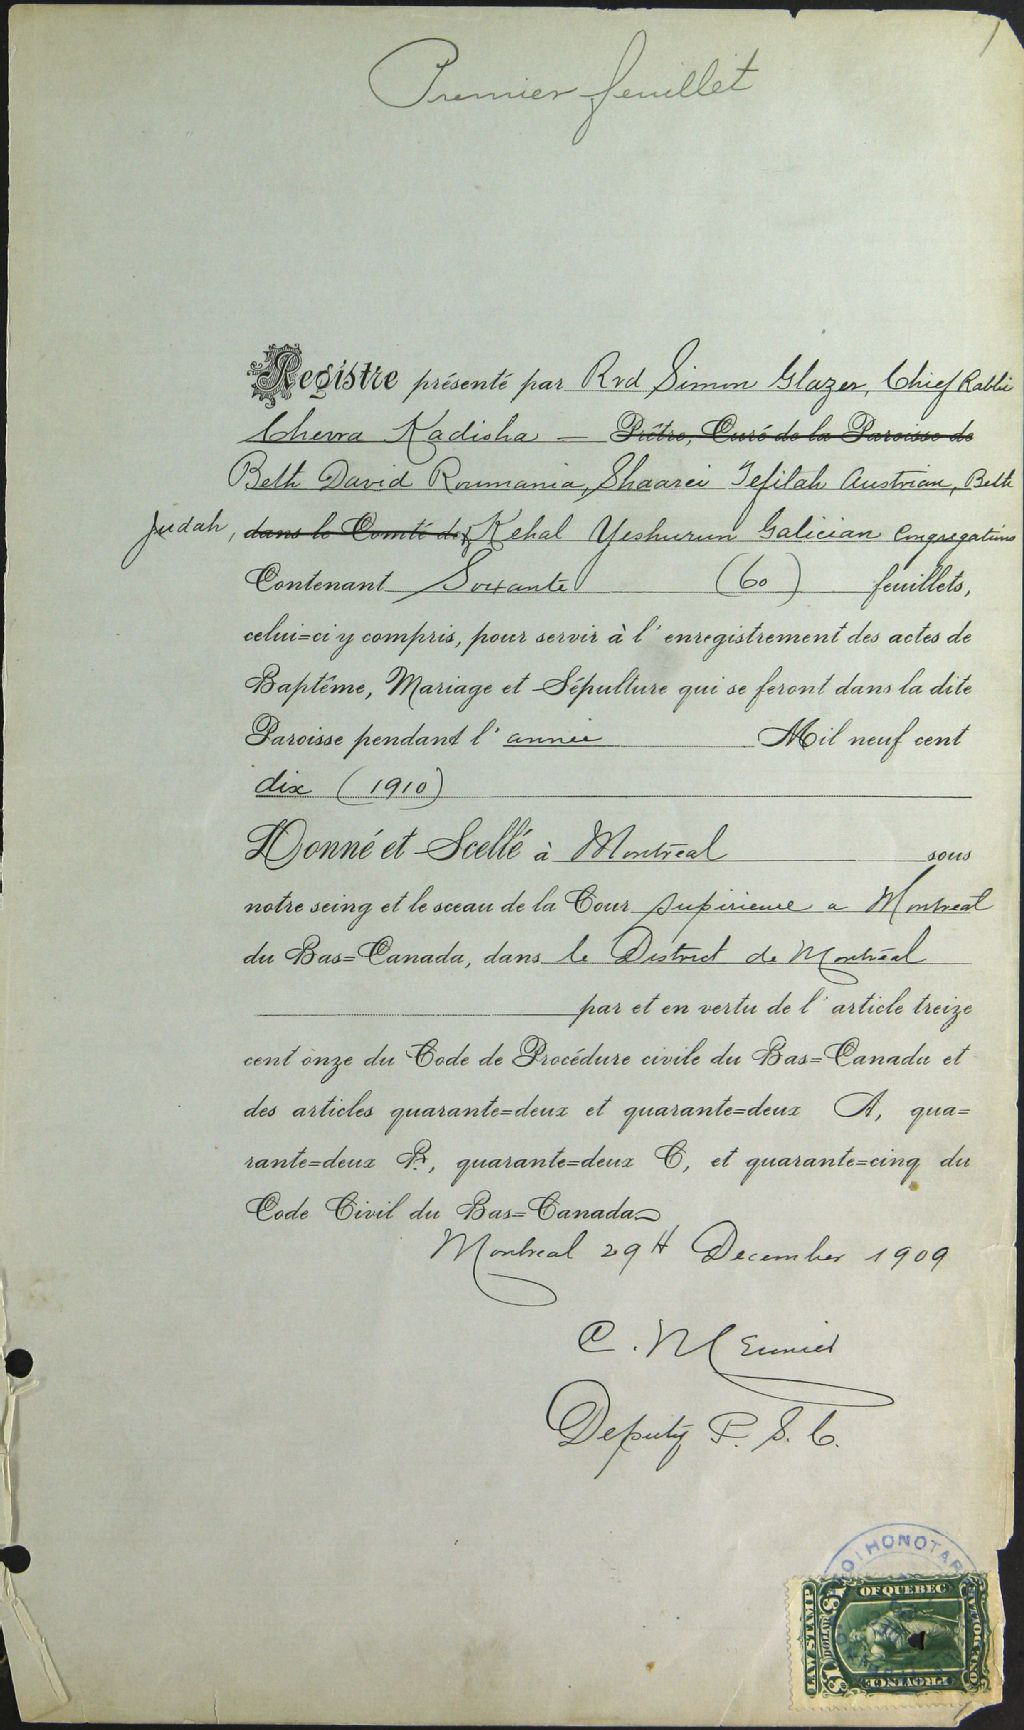 1
Premier feuillet
Registre présenté par Rvd Simon Glazer, Chief Rabbi
Chevra Kadisha — Prêtre, Curé de la Paroisse de
Beth David Roumania, Shaarei Tefilah Austrian, Beth
Judah, dans le Comté de Kehal Yeshurun Galician Congregations
Contenant Soixante (60) feuillets,
celui=ci y compris, pour servir à l'enregistrement des actes de
Baptême, Mariage et Sépulture qui se feront dans la dite
Paroisse pendant l'année Mil neuf cent
dix (1910)
Donné et Scellé à Montréal sous
notre seing et le sceau de la Cour supérieure a Montreal
du Bas=Canada, dans le District de Montréal
par et en vertu de l'article treize
cent onze du Code de Procédure civile du Bas=Canada et
des articles quarante=deux et quarante=deux A, qua=
rante=deux B, quarante=deux C, et quarante=cinq du
Code Civil du Bas=Canada
Montreal 29th December 1909
C. Meunier
Deputy P. S. C.
LAW STAMP
OF QUEBEC
PROVINCE
ONE DOLLAR
$1
DOLLAR
$1